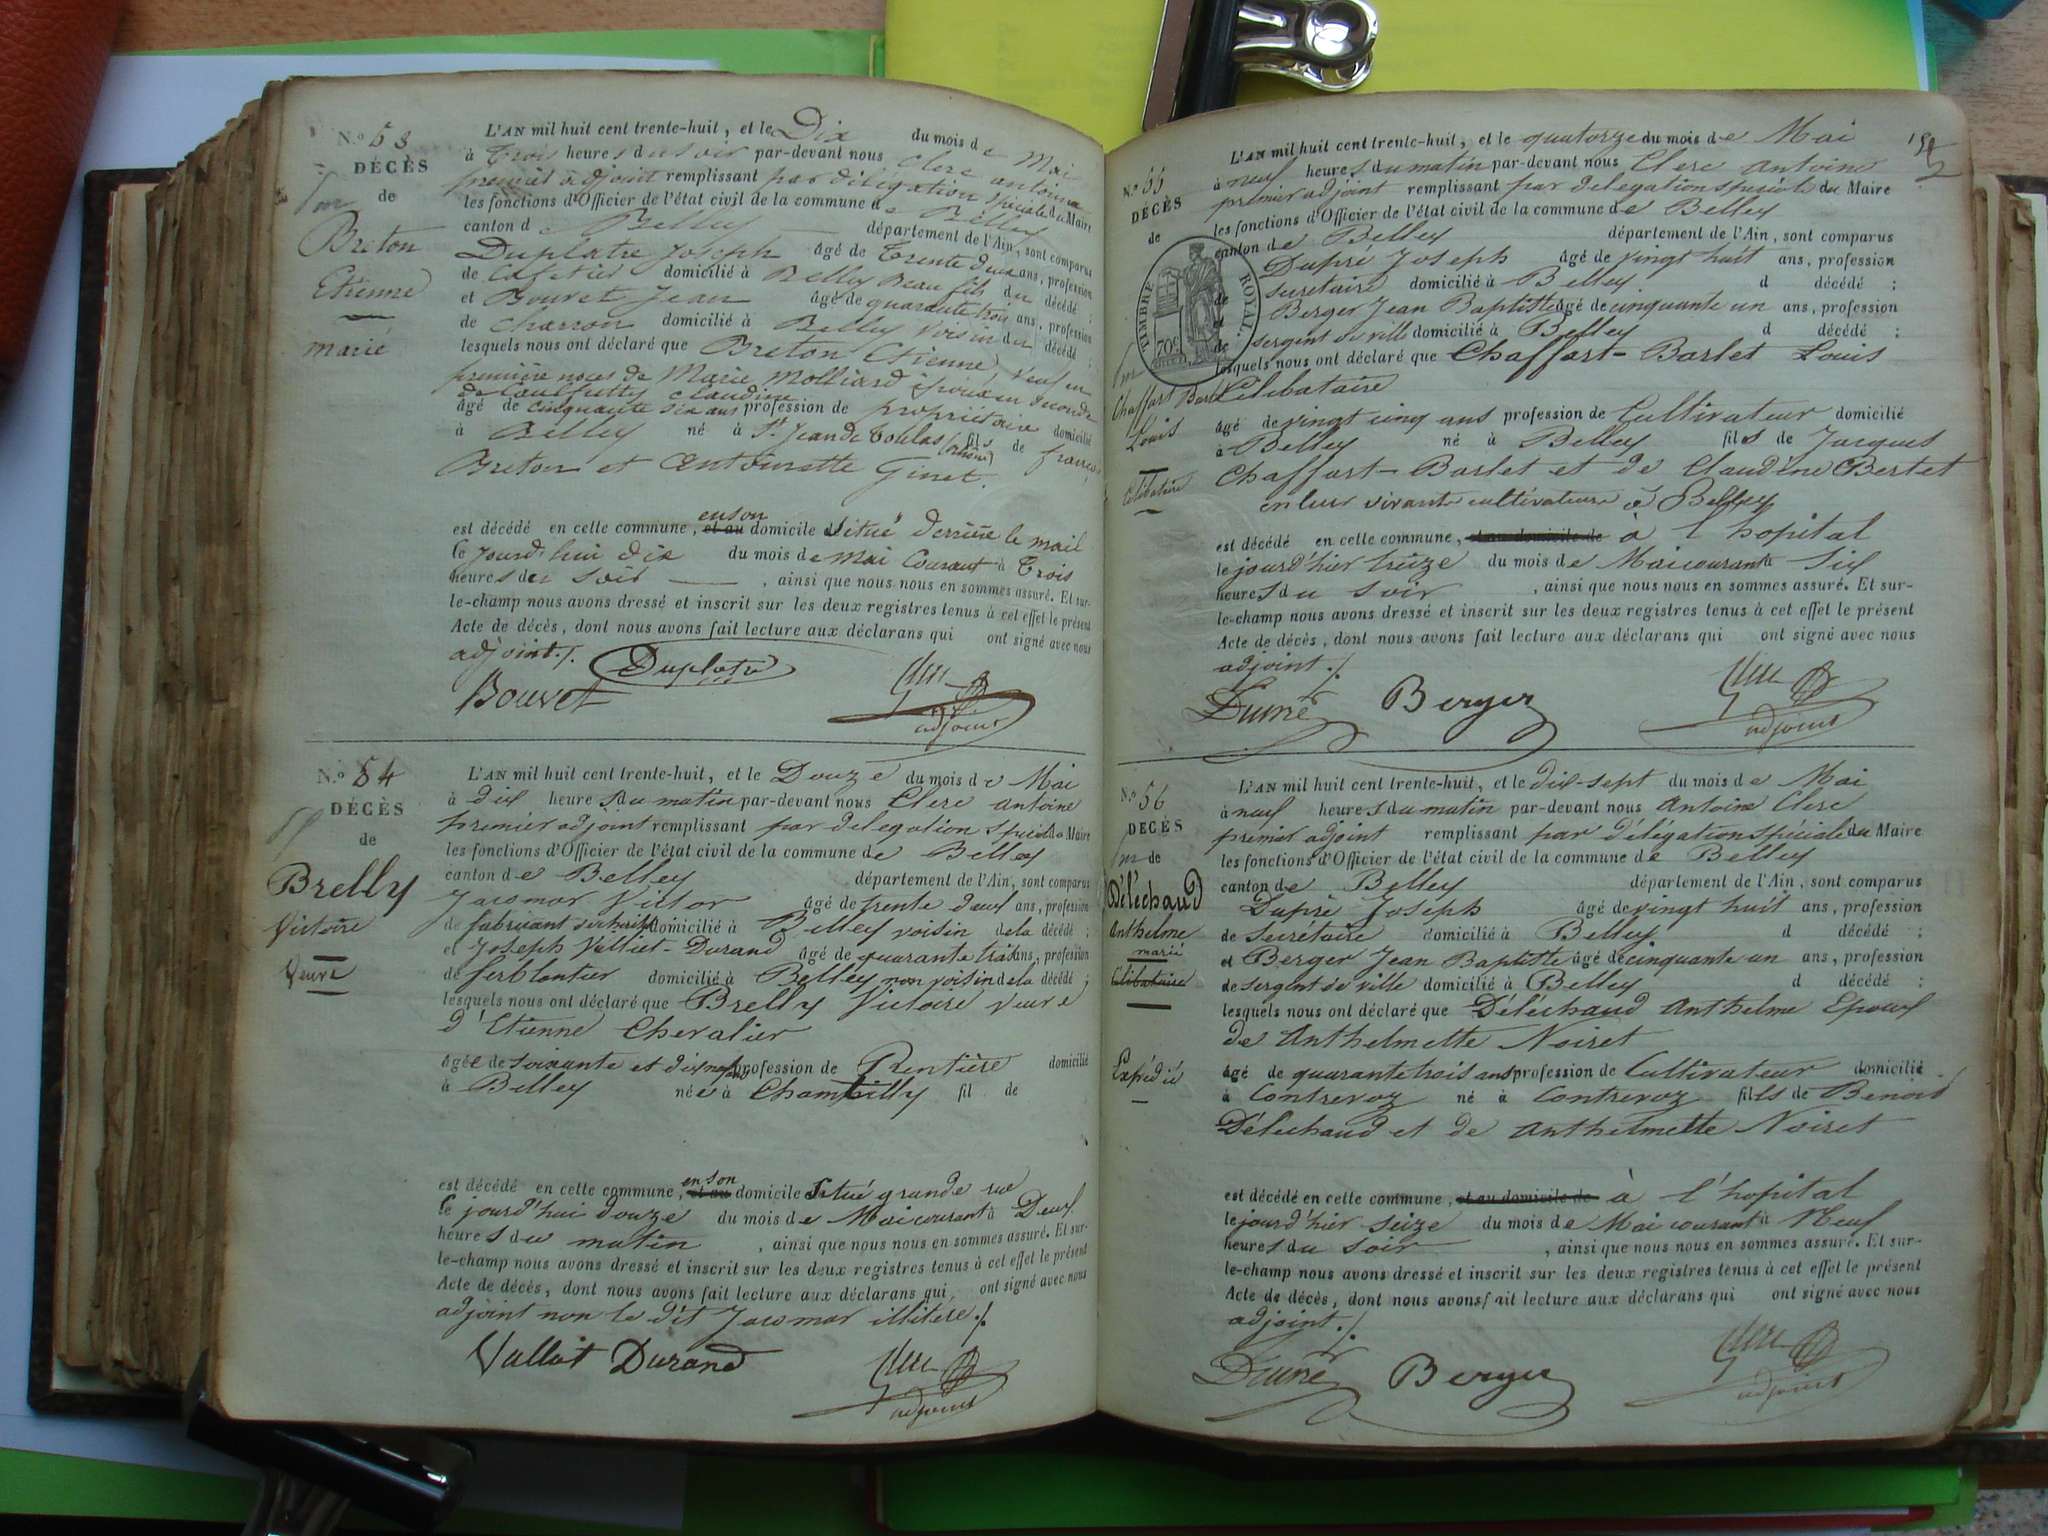 N.o 53
DÉCÈS
de
Breton
Etienne
marié
L'AN mil huit cent trente-huit, et le Dix du mois de Mai
à Trois heures du soir par-devant nous Clerc antoine
premier adjoint remplissant par délégation spéciale du Maire
les fonctions d'Officier de l'état civil de la commune de Belley
canton de Belley département de l'Ain, sont comparus
Duplatre Joseph âgé de Trente deux ans, profession
de Cafetier domicilié à Belley Beau fils du décédé ;
et Bouvet Jean âgé de quarante trois ans, profession
de charron domicilié à Belley voisin du décédé ;
lesquels nous ont déclaré que Breton Etienne, veuf en
première noces de Marie Molliard époux en seconde
de claudine
âgé de cinquante six ans profession de propriétaire domicilié
à Belley né à St Jean de Toulas (rhône) fils de françois
Breton et Antoinette Ginet.
est décédé en cette commune, en son et au domicile situé derrière le mail
le jourd'hui dix du mois de Mai courant à Trois
heures du soir , ainsi que nous nous en sommes assuré. Et sur-
le-champ nous avons dressé et inscrit sur les deux registres tenus à cet effet le présent
Acte de décès, dont nous avons fait lecture aux déclarans qui ont signé avec nous
adjoint ./.
Duplatre
Bouvet
Clerc
adjoint
N.o 54
DÉCÈS
de
Brelly
Victoire
Veuve
L'AN mil huit cent trente-huit, et le Douze du mois de Mai
à dix heures du matin par-devant nous Clerc Antoine
premier adjoint remplissant par delegation speciale du Maire
les fonctions d'Officier de l'état civil de la commune de Belley
canton de Belley département de l'Ain, sont comparus
Jacomar Victor âgé de trente deux ans, profession
de fabricant domicilié à Belley voisin de la décédé ;
et Joseph Valliet-Durand âgé de quarante trois ans, profession
de ferblantier domicilié à Belley non voisin de la décédé ;
lesquels nous ont déclaré que Brelly Victoire veuve
d'Etienne Chevalier
âgée de soixante et dix neuf ans profession de Rentière domicilié
à Belley née à Champilly fil de
est décédé en cette commune, en son et au domicile situé grande rue
le jourd'hui douze du mois de Mai courant à Deux
heures du matin , ainsi que nous nous en sommes assuré. Et sur-
le-champ nous avons dressé et inscrit sur les deux registres tenus à cet effet le présent
Acte de décès, dont nous avons fait lecture aux déclarans qui ont signé avec nous
adjoint non le dit Jacomar illitéré ./.
Valliot Durand
Clerc
adjoint
N.o 55
DÉCÈS
de
TIMBRE ROYAL
70c
Chaffart Barlet
Louis
Celibataire
L'AN mil huit cent trente-huit, et le quatorze du mois de Mai
à neuf heures du matin par-devant nous Clerc Antoine
premier adjoint remplissant par delegation spéciale du Maire
les fonctions d'Officier de l'état civil de la commune de Belley
canton de Belley département de l'Ain, sont comparus
Dupré Joseph âgé de vingt huit ans, profession
de secretaire domicilié à Belley d décédé ;
et Berger Jean Baptiste âgé de cinquante un ans, profession
de sergent de ville domicilié à Belley d décédé ;
lesquels nous ont déclaré que Chaffart-Barlet Louis
Célibataire
âgé de vingt cinq ans profession de Cultivateur domicilié
à Belley né à Belley fils de Jacques
Chaffart-Barlet et de Claudine Bertet
en leur vivante cultivateurs à Belley
est décédé en cette commune, et au domicile de à l'hopital
le jourd'hier treize du mois de Mai courant à six
heures du soir , ainsi que nous nous en sommes assuré. Et sur-
le-champ nous avons dressé et inscrit sur les deux registres tenus à cet effet le présent
Acte de décès, dont nous avons fait lecture aux déclarans qui ont signé avec nous
adjoint ./.
Dupré Berger
Clerc
adjoint
N.o 56
DÉCÈS
de
Déléchaud
Anthelme
marié
Celibataire
Expédié
L'AN mil huit cent trente-huit, et le dix-sept du mois de Mai
à neuf heures du matin par-devant nous Antoine Clerc
premier adjoint remplissant par délégation spéciale du Maire
les fonctions d'Officier de l'état civil de la commune de Belley
canton de Belley département de l'Ain, sont comparus
Dupré Joseph âgé de vingt huit ans, profession
de Secrétaire domicilié à Belley d décédé ;
et Berger Jean Baptiste âgé de cinquante un ans, profession
de sergent de ville domicilié à Belley d décédé ;
lesquels nous ont déclaré que Déléchaud Anthelme Epoux
de Anthelmette Noiret
âgé de quarante trois ans profession de Cultivateur domicilié
à Contrevoz né à Contrevoz fils de Benoit
Déléchaud et de Anthelmette Noiret
est décédé en cette commune, et au domicile de à l'hopital
le jourd'hier seize du mois de Mai courant à Neuf
heures du soir , ainsi que nous nous en sommes assuré. Et sur-
le-champ nous avons dressé et inscrit sur les deux registres tenus à cet effet le présent
Acte de décès, dont nous avons fait lecture aux déclarans qui ont signé avec nous
adjoint ./.
Dupré Berger
Clerc
adjoint